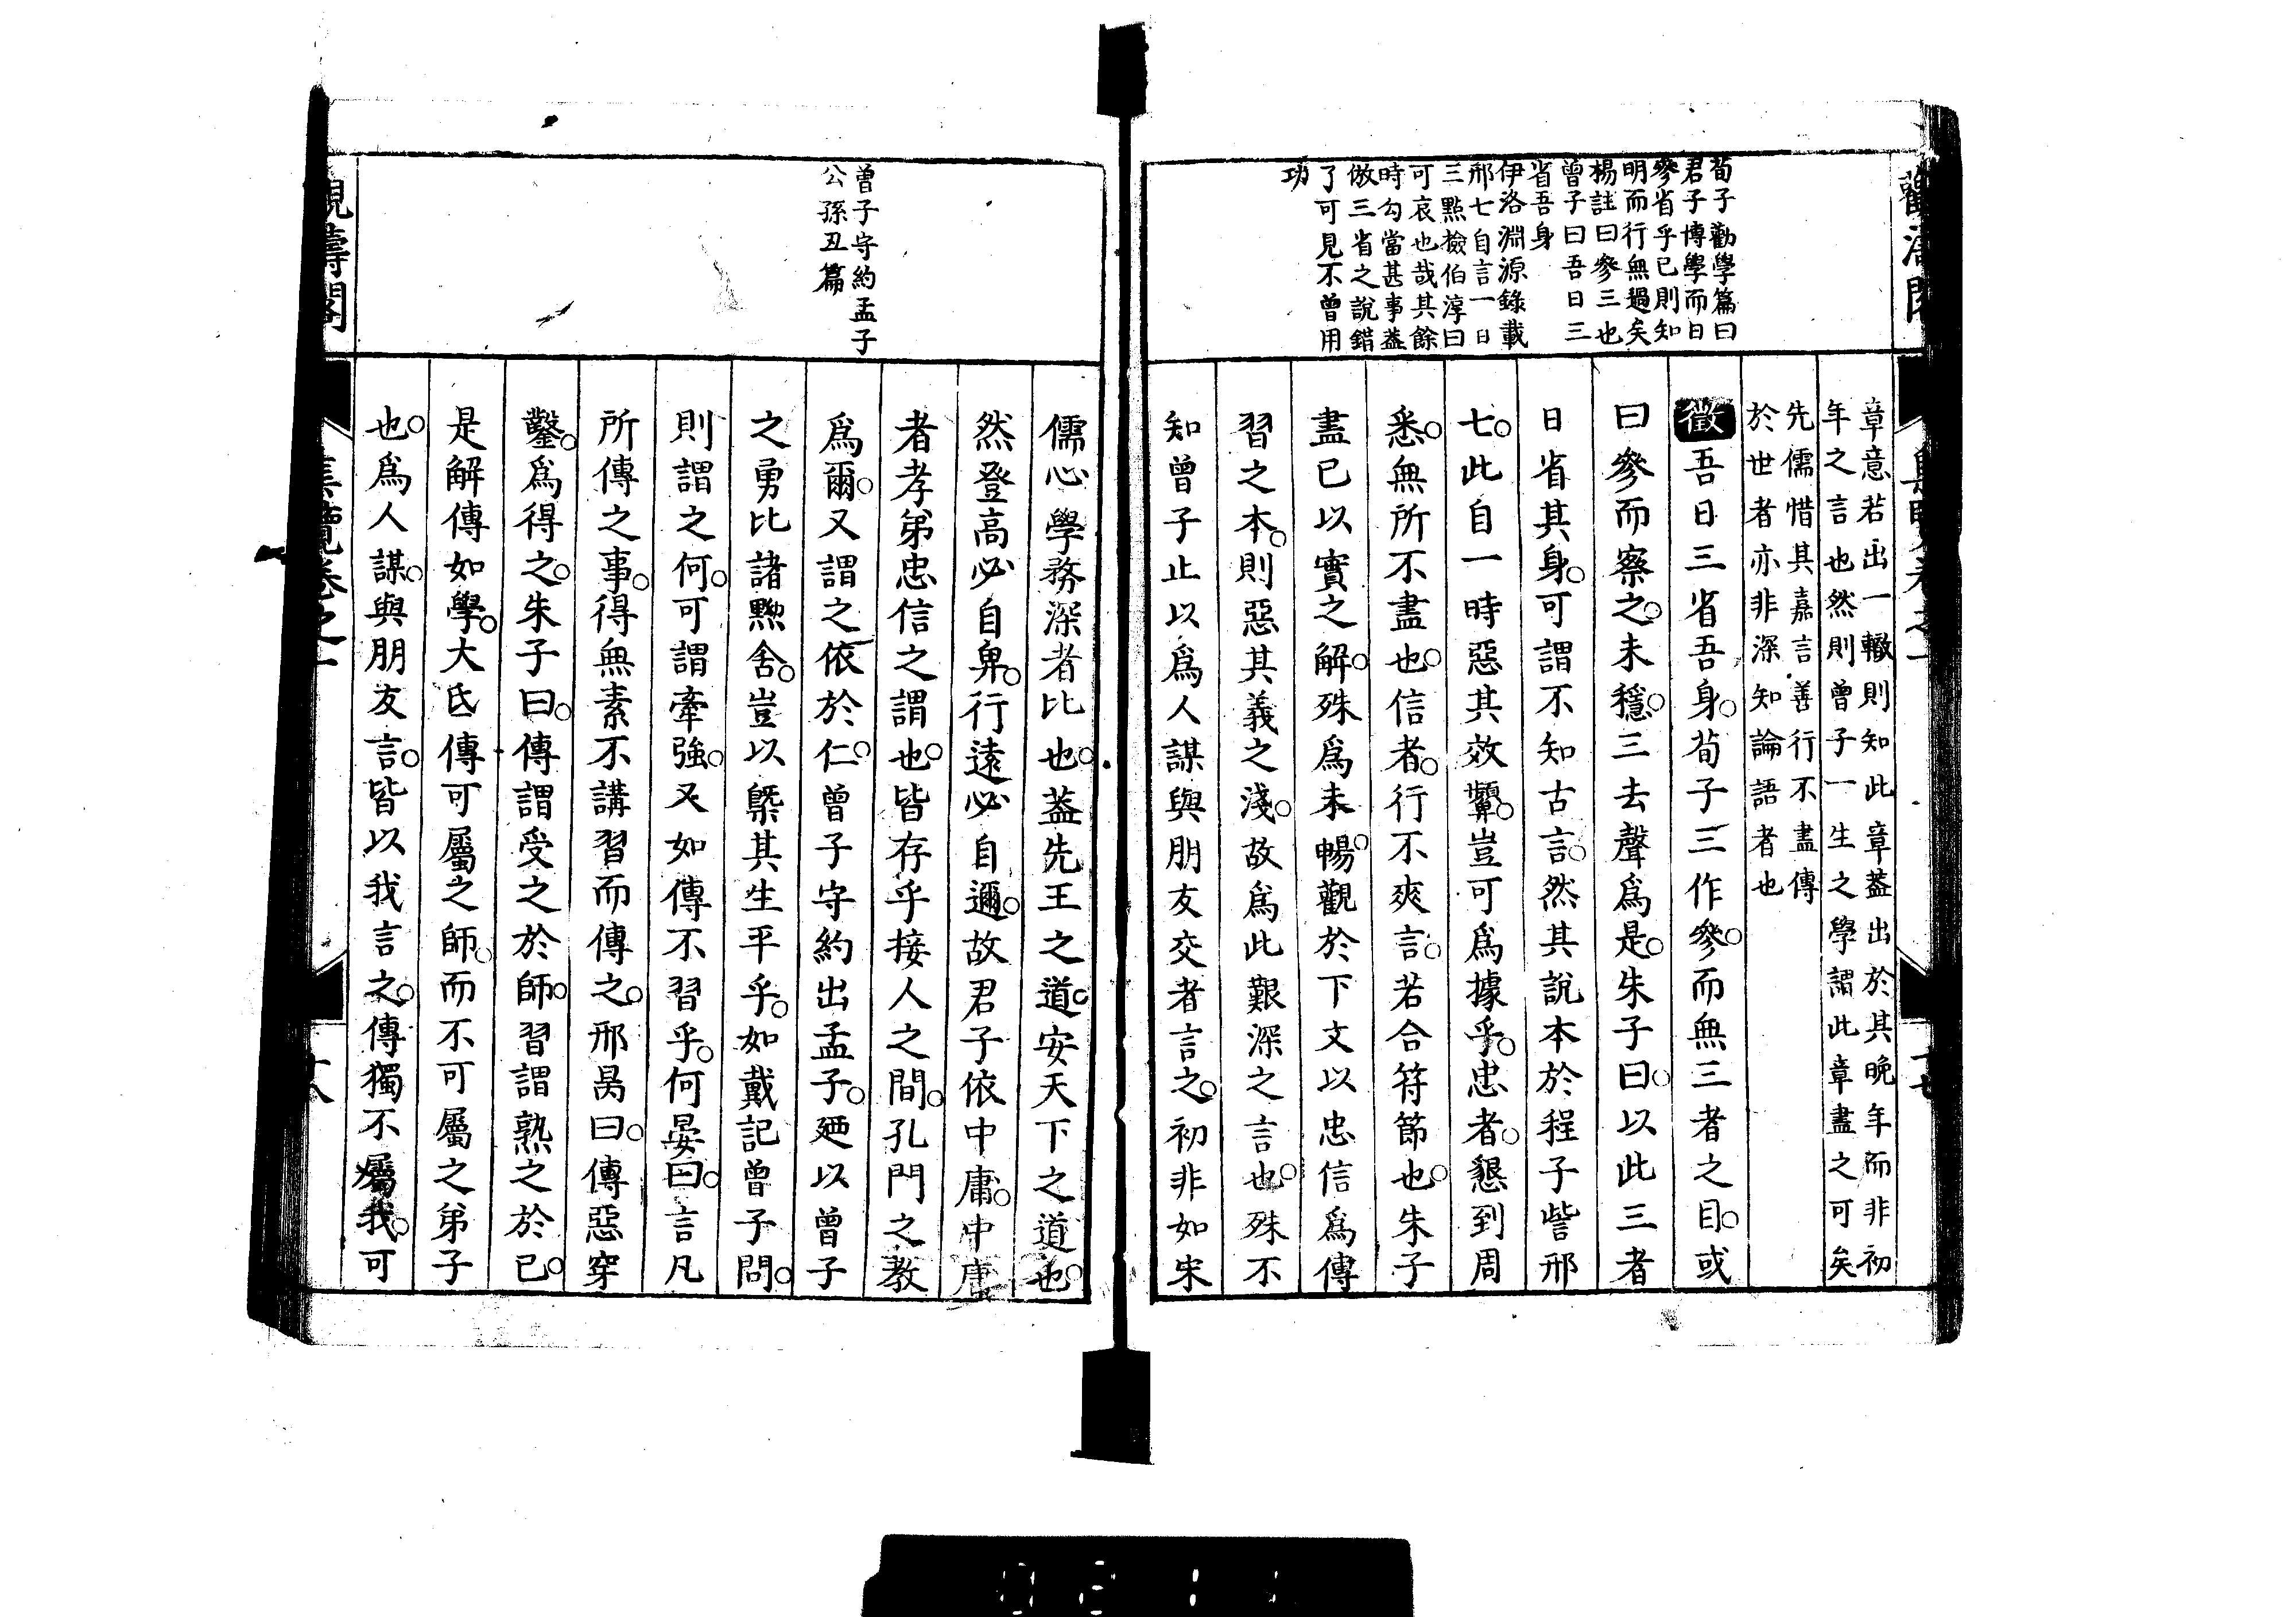 荀子勸學篇曰
君子博學而日
參省乎己則知
明而行無過矣
楊註曰參三也
曾子曰吾日三
省吾身
伊洛淵源錄載
邢七自言一日
三點檢伯淳曰
可哀也哉其餘
時勾當甚事蓋
倣三省之說錯
了可見不曾用
功
章意若出一轍則知此章蓋出於其晚年而非初
年之言也然則曾子一生之學謂此章盡之可矣
先儒惜其嘉言善行不盡傳
於世者亦非深知論語者也
徵吾日三省吾身。荀子三作參。而無三者之目。或
曰參而察之。未穩。三去聲爲是。朱子曰。以此三者
日省其身。可謂不知古言。然其說本於程子訾邢
七。此自一時惡其效顰。豈可爲據乎。忠者。懇到周
悉。無所不盡也。信者。行不爽言。若合符節也。朱子
盡己以實之解。殊爲未暢。觀於下文以忠信爲傳
習之本。則惡其義之淺。故爲此艱深之言也。殊不
知曾子止以爲人謀與朋友交者言之。初非如宋
曾子守約孟子
公孫丑篇
儒心學務深者比也。蓋先王之道。安天下之道也。
然登高必自卑。行遠必自邇。故君子依中庸。中庸
者孝弟忠信之謂也。皆存乎接人之間。孔門之教
爲爾。又謂之依於仁。曾子守約出孟子。廼以曾子
之勇比諸黝舍。豈以槩其生平乎。如戴記曾子問。
則謂之何。可謂牽強。又如傳不習乎。何晏曰。言凡
所傳之事。得無素不講習而傳之。邢昺曰。傳惡穿
鑿。爲得之。朱子曰。傳謂受之於師。習謂熟之於己。
是解傳如學。大氐傳可屬之師。而不可屬之弟子
也。爲人謀。與朋友言。皆以我言之。傳獨不屬我。可
觀濤閣
集覽卷之一